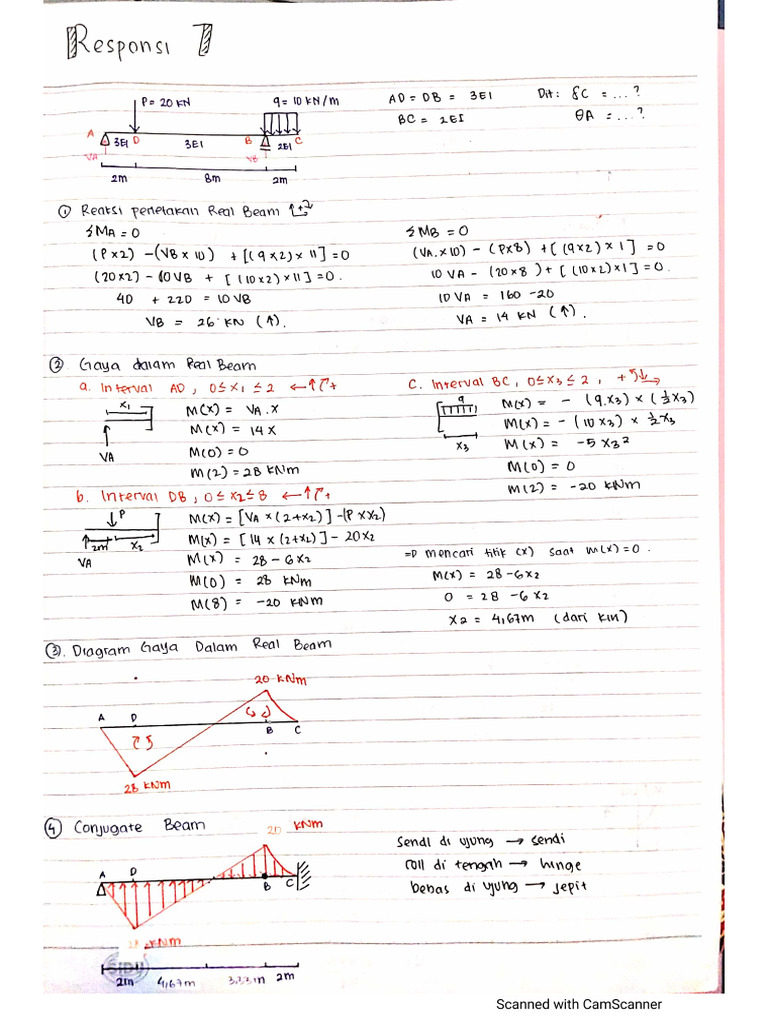 Responsi 7
P = 20 KN
q = 10 KN/m
AD = DB = 3EI
Dit: δC = ...?
BC = 2EI
θA = ...?
A 3EI D 3EI B 2EI C
VA VB
2m 8m 2m
① Reaksi perletakan Real Beam
ΣMA = 0
(P×2) – (VB × 10) + [(q×2) × 11] = 0
(20×2) – 10VB + [(10×2) × 11] = 0.
40 + 220 = 10VB
VB = 26 KN (↑).
ΣMB = 0
(VA.×10) – (P×8) + [(q×2) × 1] = 0
10 VA – (20×8) + [(10×2)×1] = 0.
10 VA = 160 – 20
VA = 14 KN (↑).
② Gaya dalam Real Beam
a. Interval AD, 0 ≤ X1 ≤ 2 ←↑↱+
X1
VA
M(x) = VA.X
M(x) = 14X
M(0) = 0
M(2) = 28 KNm
b. Interval DB, 0 ≤ X2 ≤ 8 ←↑↱+
P
2m X2
VA
M(x) = [VA × (2+X2)] – (P × X2)
M(x) = [14 × (2+X2)] – 20X2
M(x) = 28 – 6X2
M(0) = 28 KNm
M(8) = –20 KNm
C. Interval BC, 0 ≤ X3 ≤ 2, +↰↓→
q
X3
M(x) = – (q.X3) × (½X3)
M(x) = – (10X3) × ½X3
M(x) = –5X3²
M(0) = 0
M(2) = –20 KNm
⇒ mencari titik (x) saat M(x) = 0.
M(x) = 28 – 6X2
0 = 28 – 6X2
X2 = 4,67m (dari kiri)
③. Diagram Gaya Dalam Real Beam
20 KNm
A D B C
28 KNm
④ Conjugate Beam
20 KNm
A D B C
28 KNm
Sendi di ujung → sendi
roll di tengah → hinge
bebas di ujung → jepit
SIDU
2m 4,67m 3,33m 2m
Scanned with CamScanner